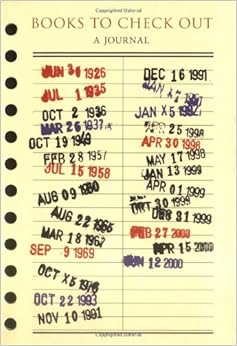 BOOKS TO CHECK OUT
A JOURNAL
JUN 1926
JUL 1 1935
OCT 2 1936
MAR 26 1937
OCT 19 1949
FEB 28 1957
JUL 15 1958
AUG 09 1960
AUG 22 1965
MAR 18 1967
SEP 9 1969
OCT
OCT 22 1993
NOV 10 1991
DEC 16 1991
JAN
JAN
25 1998
APR 30 1998
MAY 17 1998
JAN 13 1999
APR 01 1999
30 1999
DEC 31 1999
FEB 27 2000
APR 15 2000
JUN 2000